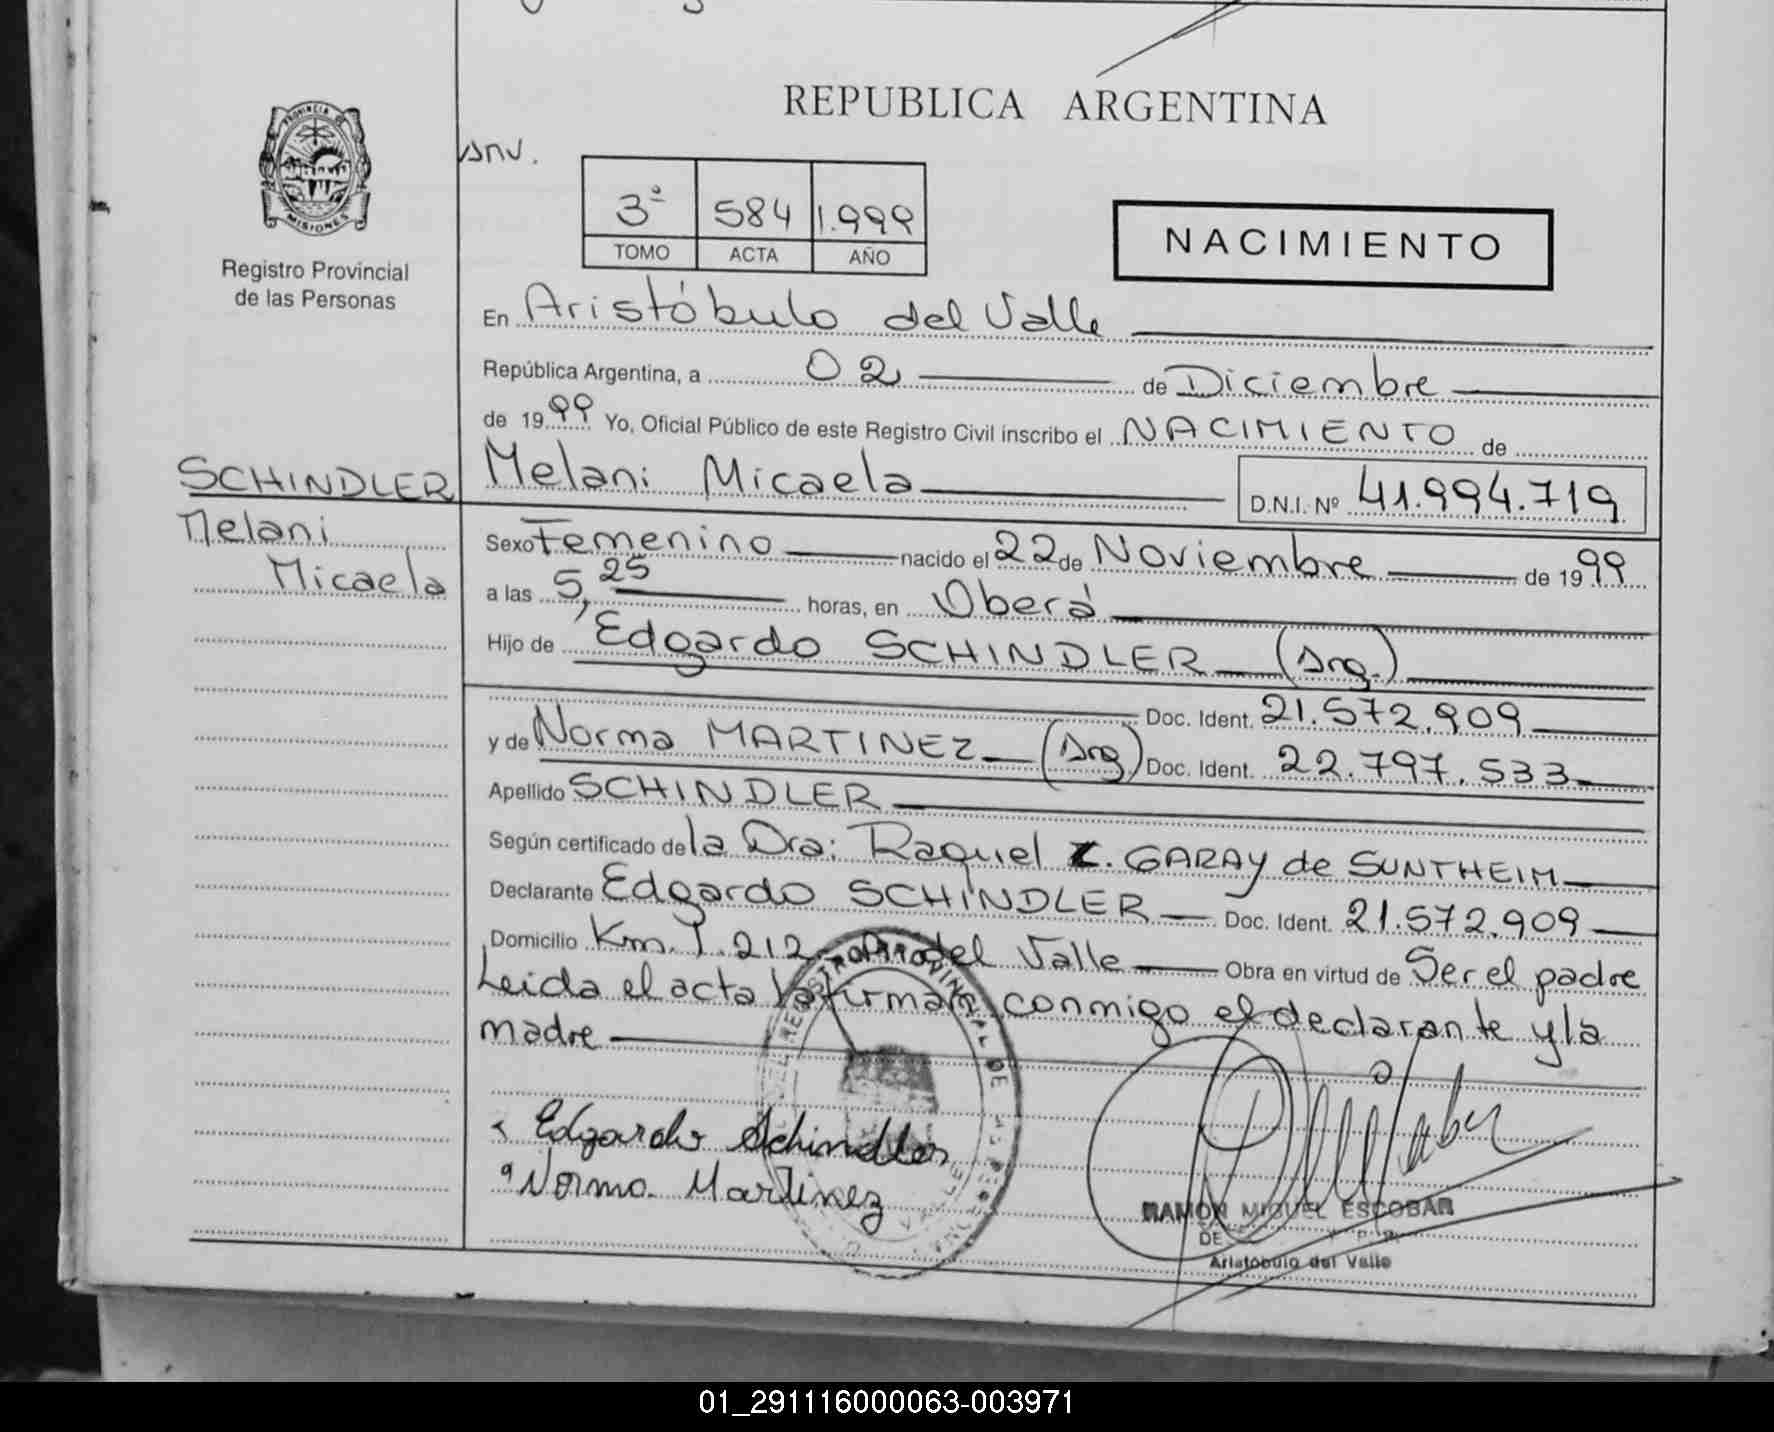 REPUBLICA ARGENTINA
PROVINCIA DE
MISIONES
Registro Provincial
de las Personas
3º 584 1.999
TOMO ACTA AÑO
NACIMIENTO
En Aristóbulo del Valle
República Argentina, a 02 de Diciembre
de 1999 Yo, Oficial Público de este Registro Civil inscribo el NACIMIENTO de
SCHINDLER
Melani
Micaela
Melani Micaela D.N.I. Nº 41.994.719
Sexo Femenino nacido el 22 de Noviembre de 1999
a las 5,25 horas, en Oberá
Hijo de Edgardo SCHINDLER (Arg.)
Doc. Ident. 21.572.909
y de Norma MARTINEZ (Arg) Doc. Ident. 22.797.533
Apellido SCHINDLER
Según certificado de la Dra: Raquel Z. GARAY de SUNTHEIM
Declarante Edgardo SCHINDLER Doc. Ident. 21.572.909
Domicilio Km. 212 del Valle Obra en virtud de Ser el padre
Leida el acta la firman conmigo el declarante y la
madre
Edgardo Schindler
Norma Martinez
RAMON MIGUEL ESCOBAR
Aristóbulo del Valle
01_291116000063-003971